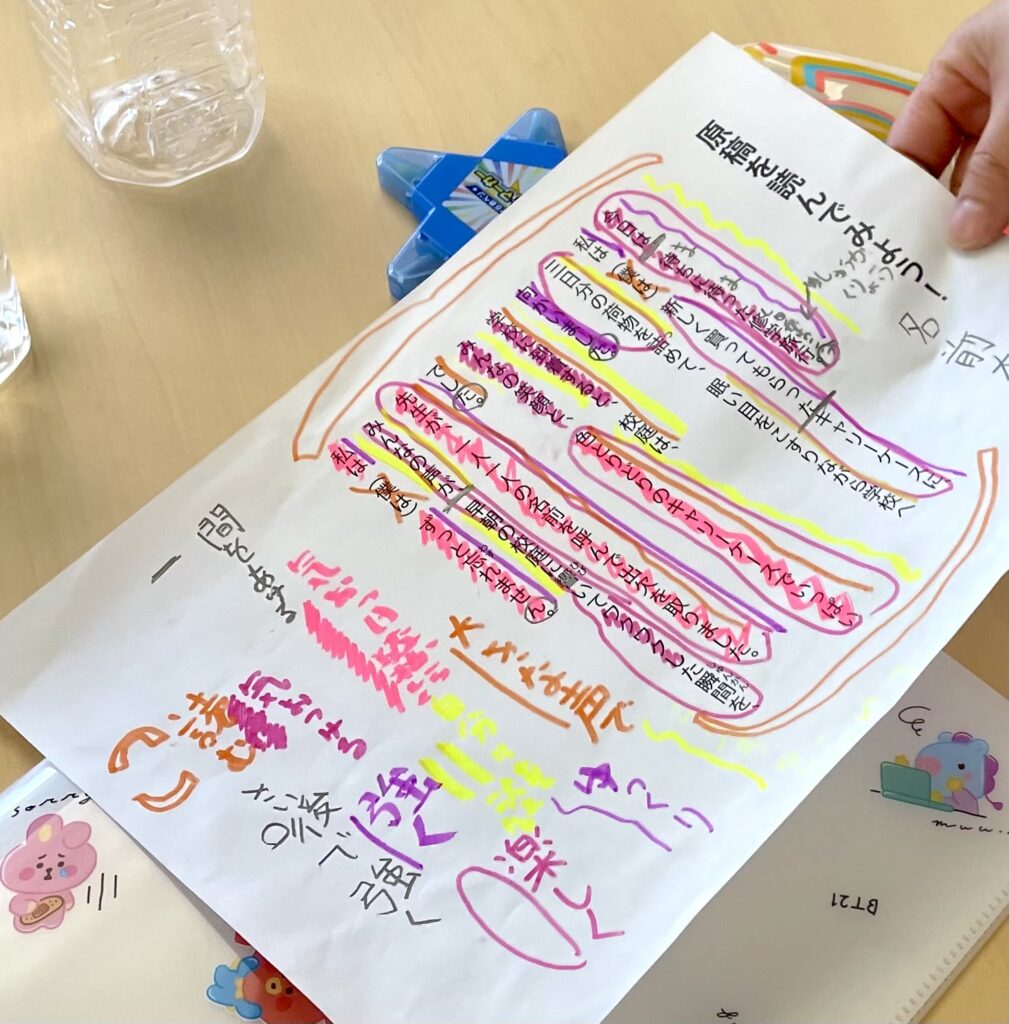 原稿を読んでみよう!
名前
今日は、待ちに待った修学旅行。
私は(僕は)、新しく買ってもらったキャリーケースに、
三日分の荷物を詰めて、眠い目をこすりながら学校へ
向かいました。
学校に到着すると、校庭は、色とりどりのキャリーケースでいっぱい
みんなの笑顔と、
でした。
先生が、一人一人の名前を呼んで出欠を取りました。
みんなの声が、早朝の校庭に響いてワクワクした瞬間を、
私は(僕は)ずっと忘れません。
間をあける
大きな声で
ゆっくり
気をつける
読む
強く
楽しく
最後
強く
sorry
BT21